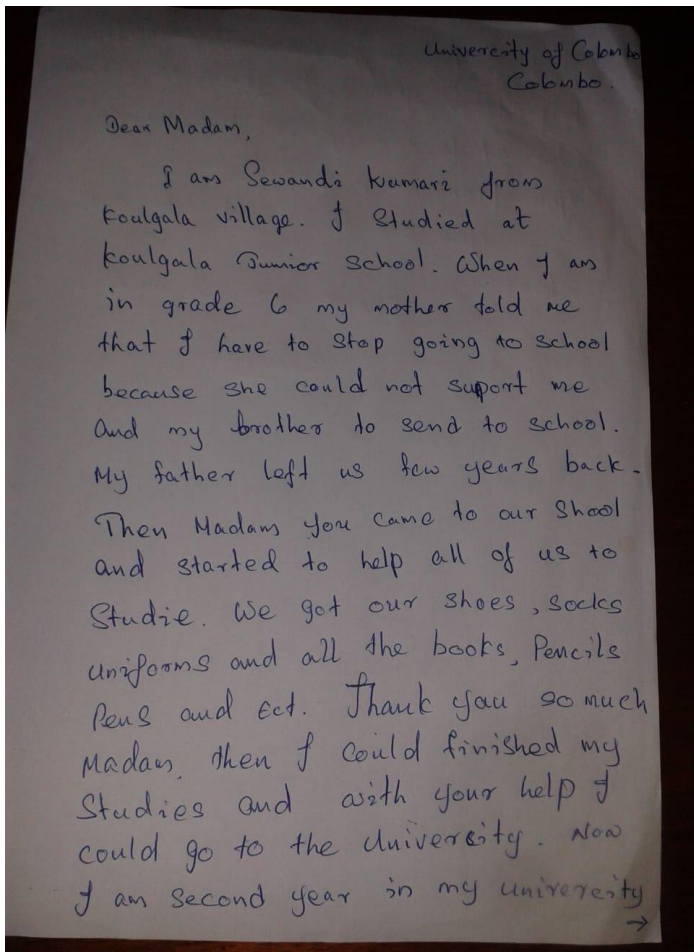 Univercity of Colombo
Colombo.
Dear Madam,
I am Sewandi Kumari from
Koulgala village. I Studied at
Koulgala Junior School. When I am
in grade 6 my mother told me
that I have to Stop going to School
because she could not suport me
and my brother to send to school.
My father left us few years back.
Then Madam you came to our Shool
and started to help all of us to
Studie. We got our shoes, socks
uniforms and all the books, Pencils
Pens and Ect. Thank you so much
Madam, then I could finished my
Studies and with your help I
could go to the University. Now
I am second year in my univercity
→